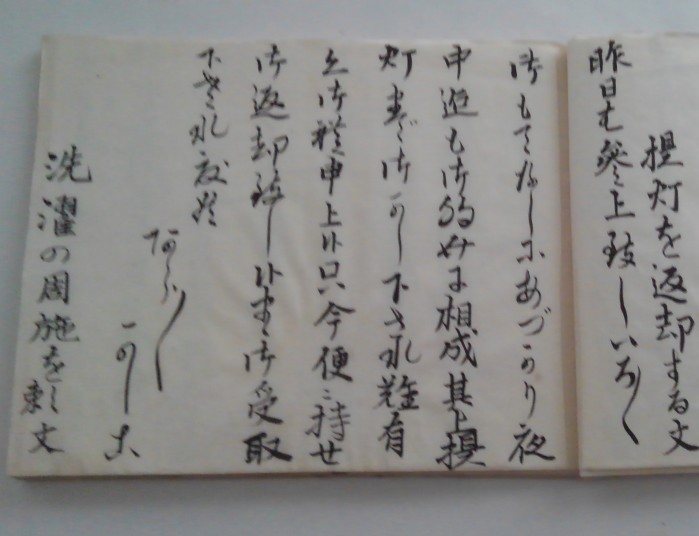 提灯を返却する文
昨日は参上致しいろ〳〵
御もてなしにあづかり夜
中迄も御妨に相成其上提
灯まで御かし下され難有
く御礼申上候只今便に持せ
御返却致し候まゝ御受取
下され度候
あら〳〵
かしこ
洗濯の周施を頼む文